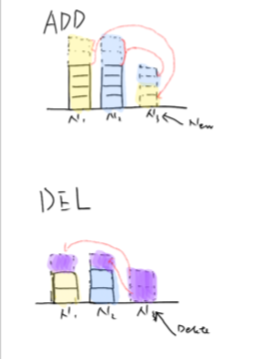 ADD
N₁ N₂ N₃ New
DEL
N₁ N₂ N₃ Delete